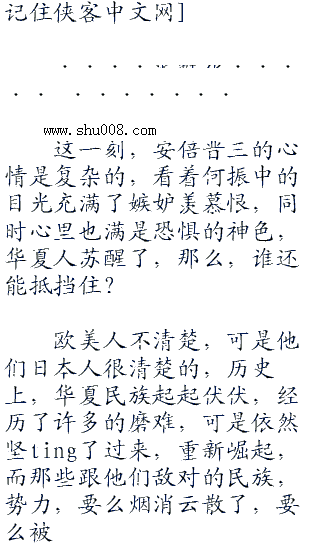 记住侠客中文网]
www.shu008.com
这一刻，安倍晋三的心
情是复杂的，看着何振中的
目光充满了嫉妒羡慕恨，同
时心里也满是恐惧的神色，
华夏人苏醒了，那么，谁还
能抵挡住？
欧美人不清楚，可是他
们日本人很清楚的，历史
上，华夏民族起起伏伏，经
历了许多的磨难，可是依然
坚ting了过来，重新崛起，
而那些跟他们敌对的民族，
势力，要么烟消云散了，要
么被